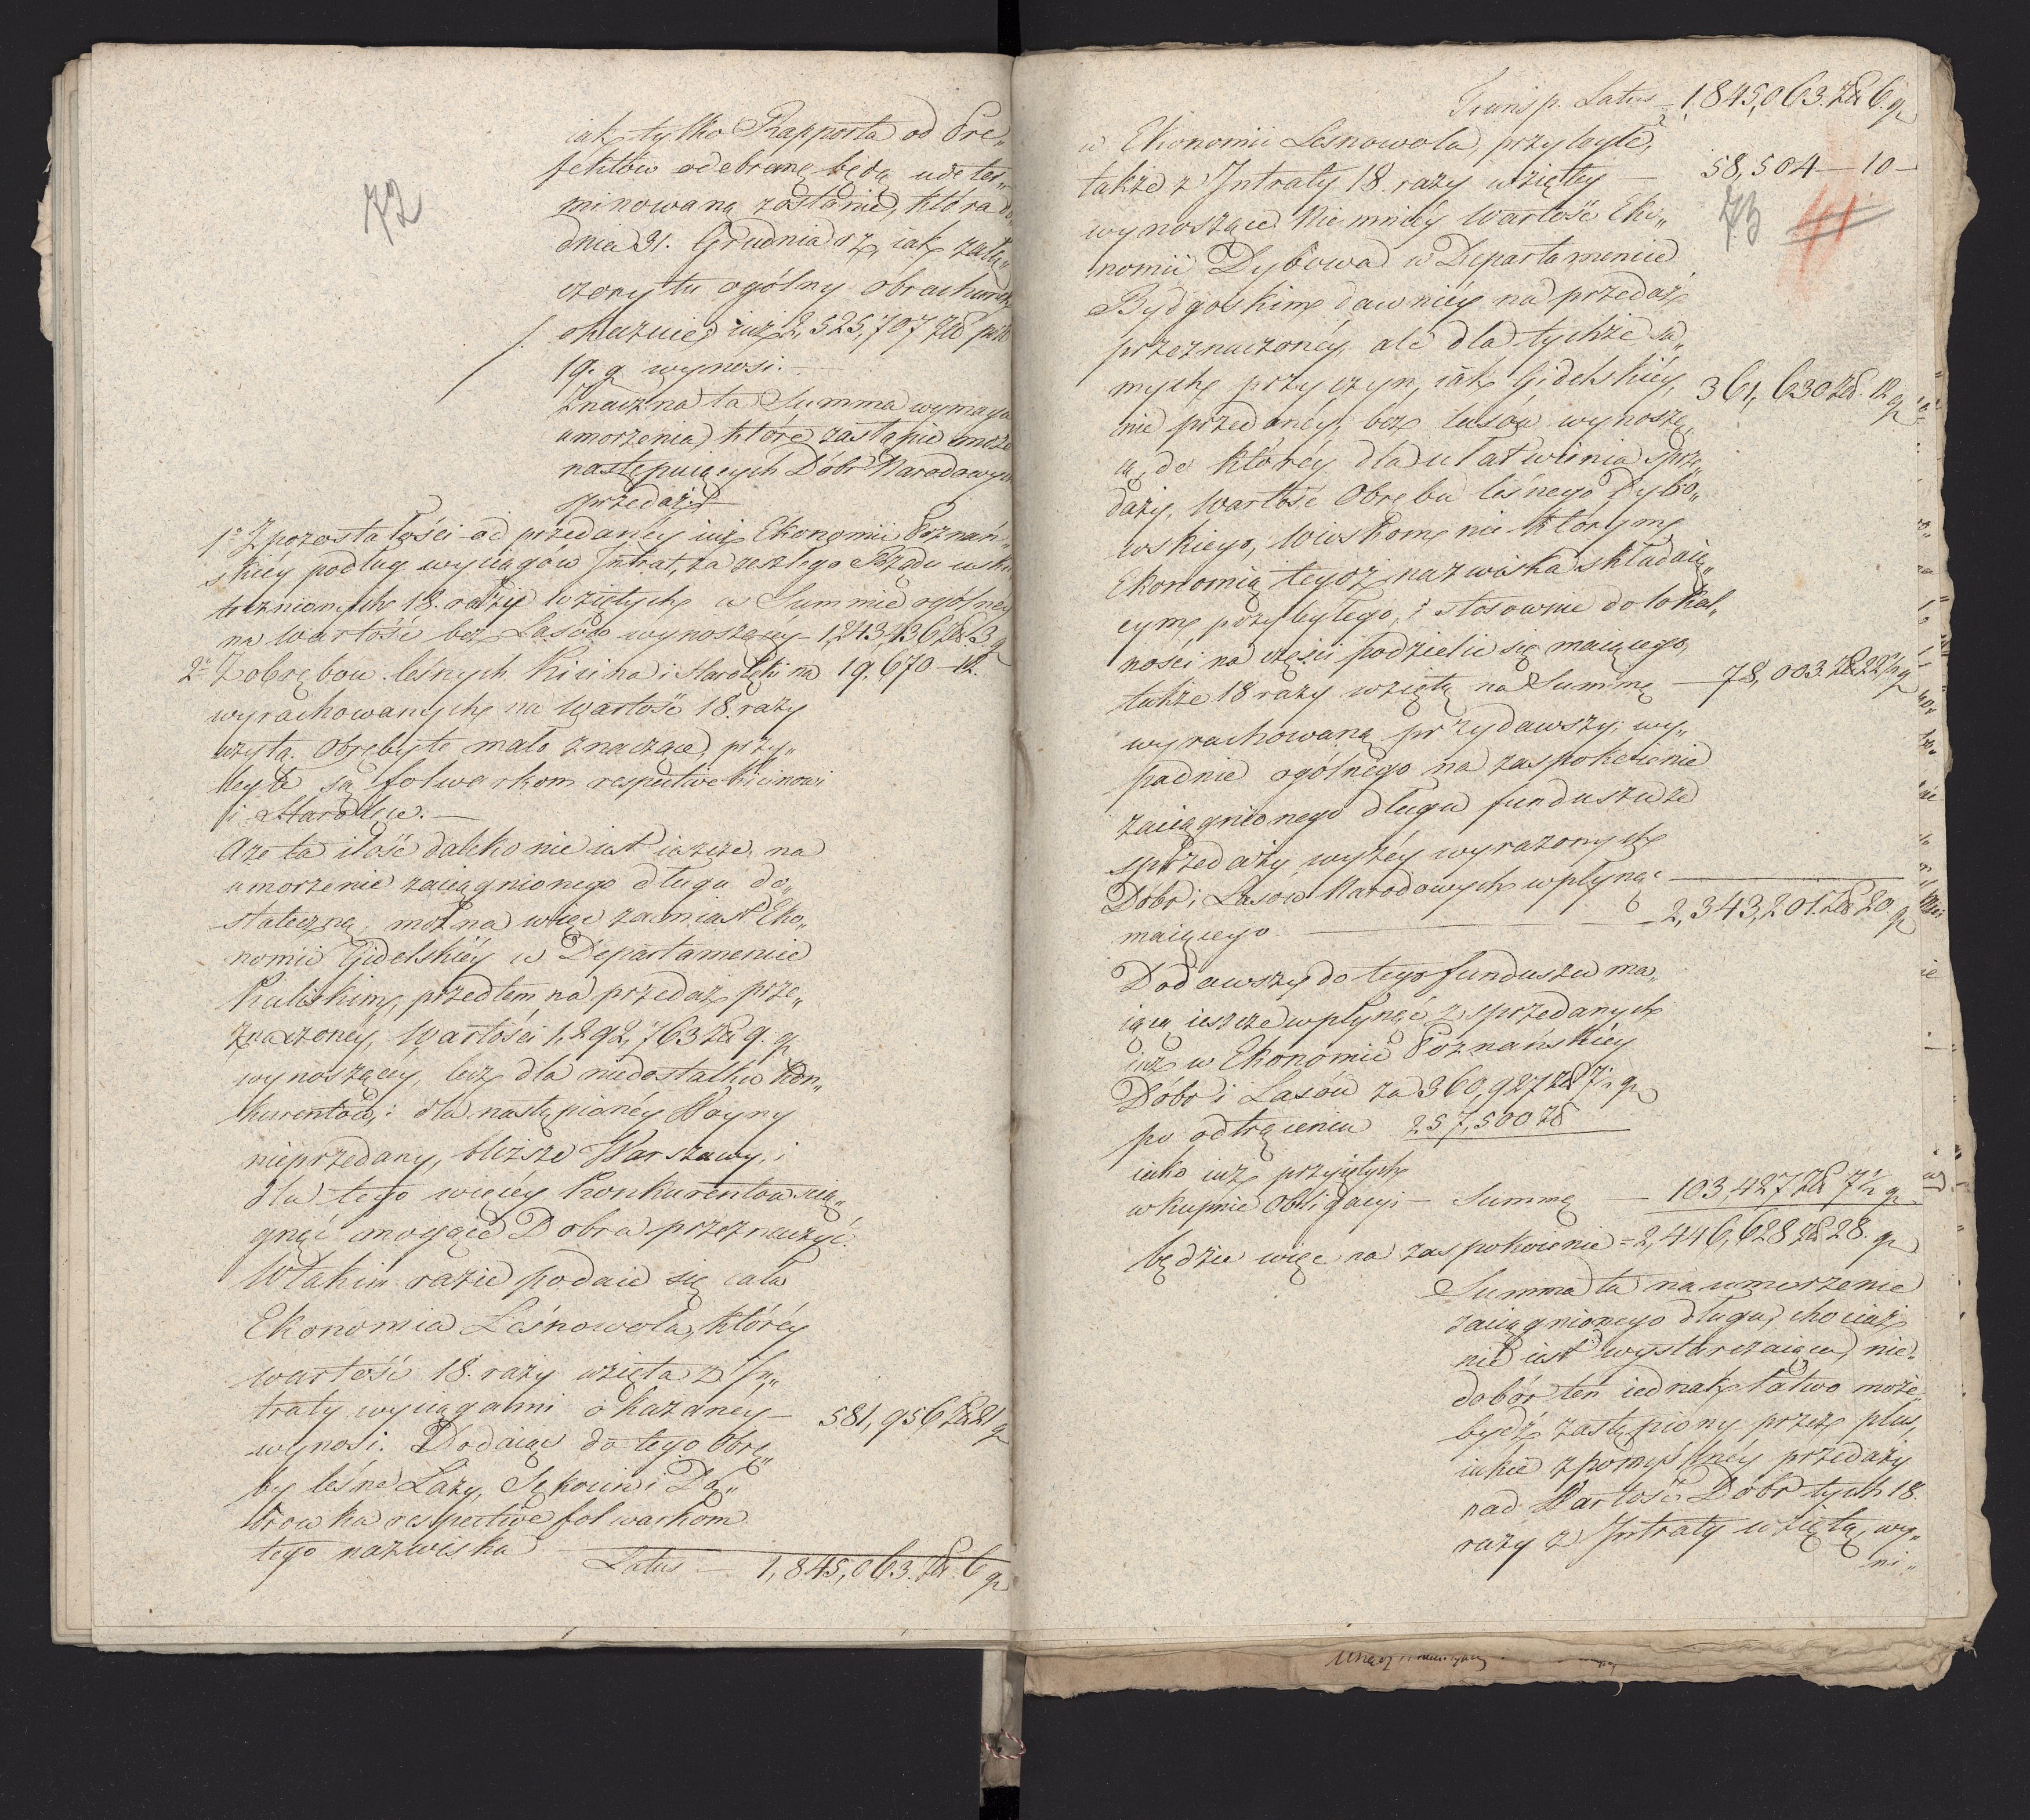 72
iak tylko Rapporta od Pre„
fektów odebrane będą udeter„
minowaną zostanie, która do
dnia 31. Grudnia rz, iak załą„
czony tu ogólny obrachunek
okazuie, iuż 2,525,707 Zł pol
19. g wynosi.
Znaczna ta Summa wymaga
umorzenia, które zastąpić może
następuiących Dóbr Narodowych
sprzedaż
1o Z pozostałości od przedanéy iuż Ekonomii Poznań„
skiéy podług wyciągów Intrat, za zeszłego Rządu usku
tecznionych 18. razy wziętych w Summie ogólnéy
na Wartość bez Lasów wynoszącéy – 1,243,436 Zł 3 g
2o Z obrębów leśnych Kicina i Starołęki na 19,670 – 12.
wyrachowanych na Wartość 18. razy
wzytą. Obręby te mało znaczące, przy„
ległe są folwarkom respective Kicinowi
i Starołęce. —
Aże ta ilość daleko nie iest ieszcze na
umorzenie zaciągnionego długu do„
stateczną, można więc zamiast Eko„
nomii Gidelskiéy w Departamencie
Kaliskim, przedtem na przedaż prze„
znaczonéy, Wartości 1,292,763 Zł 9. g
wynoszącéy, lecz dla niedostatku Kon„
kurentów, i dla nastąpionéy Woyny
nieprzedany, bliższe Warszawy, i
dla tego więcéy Konkurentów ścią„
gnąć mogące Dobra przeznaczyć.
W takim razie podaie się cała
Ekonomia Leśnowola, któréy
wartość 18. razy wzięta z In„
traty wyciągami okazanéy – 581,956 Zł 21 g
wynosi. Dodaiąc do tego Obrę„
by leśne Łazy, Sękocin i Dą„
browka respective folwarkom
tego nazwiska
Latus — 1,845,063. Zł. 6 g
Transp. Latus – 1,845,063. Zł 6. g
w Ekonomii Leśnowola, przyległe,
także z Intraty 18. razy wziętey — 58,504 — 10 —
73 41
wynoszące. Niemniéy Wartość Eko„
nomii Dybowa w Departamencie
Bydgoskim dawniéy na przedaż
przeznaczonéy, ale dla tychże sa„
mych przyczyn, iak Gidelskiéy, 361,630 Zł. 12 g
nie przedanéy, bez lasów wynoszą„
cą, do któréy dla ułatwienia sprze„
daży, Wartość Obrębu leśnego Dybo„
wskiego, Wioskom niektórym
Ekonomią tegoż nazwiska składaią„
cym przyległego, i stosownie do lokal„
ności na części podzielić się maiącego,
także 18 razy wziętą na Summę — 78,003. Zł 22½ g
wyrachowaną przydawszy, wy„
padnie ogólnego na zaspokoienie
zaciągnionego długu funduszu ze
sprzedaży wyżéy wyrażonych
Dóbr i Lasów Narodowych wpłynąć
maiącego. — 2,343,201. Zł 20. g
Dodawszy do tego funduszu ma„
iącą ieszcze wpłynąć z sprzedanych
iuż w Ekonomie Poznańskiéy
Dóbr i Lasów za 360,927 Zł 7½ g
po odtrąceniu 257,500 Zł
iako iuż przyiętych
w kupnie Obligacyi — Summę — 103,427 Zł 7½ g
będzie więc na zaspokoienie = 2,446,628 Zł 28. g
Summa ta na umorzenie
zaciągnionego długu, chociaż
nie iest wystarczaiąca, nie„
dobór ten iednak łatwo może
bydź zastąpiony przez plus,
iakie z pomyślnéy przedaży
nad Wartość Dóbr tych 18.
razy z Intraty wziętą, wy„
ni„